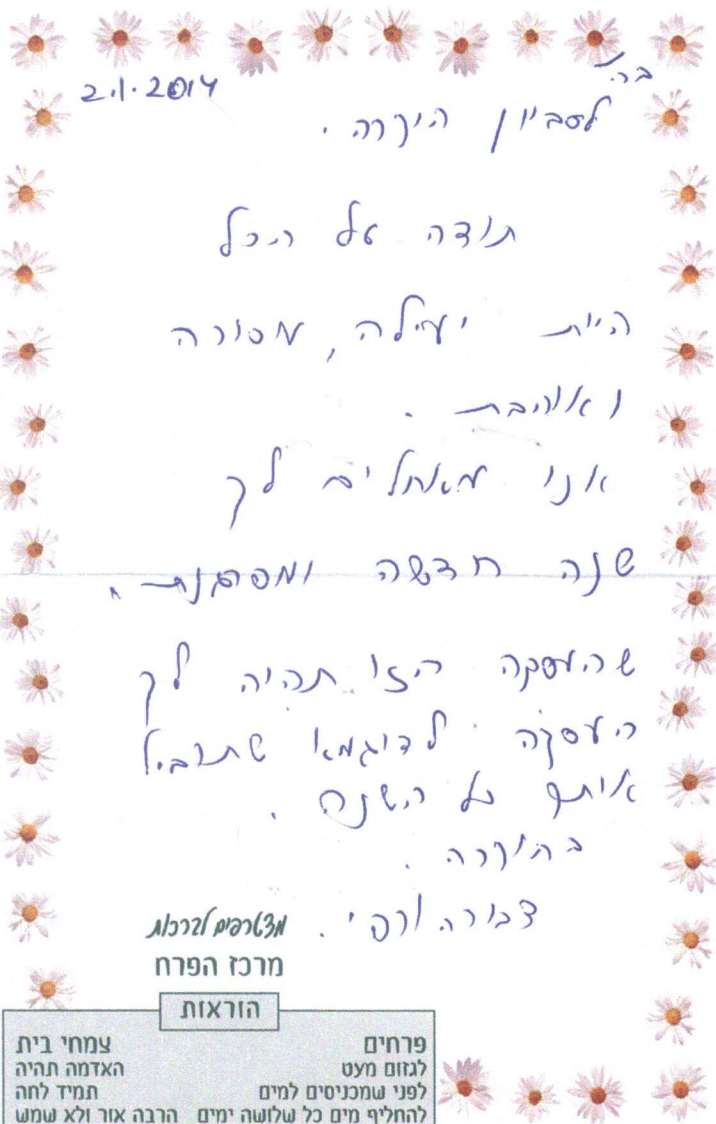 בה"
2.1.2014
לסביון היקרה.
תודה על הכל
היית יעילה, מסורה
ואוהבת.
אנו מאחלים לך
שנה חדשה ומפרגנת.
שהעסקה הזו תהיה לך
העסקה לדוגמא שתוביל
אותך כל השנה.
בהוקרה.
דבורה ורפי.
מצטרפים לברכות
מרכז הפרח
הוראות
פרחים
לגזום מעט
לפני שמכניסים למים
להחליף מים כל שלושה ימים
צמחי בית
האדמה תהיה
תמיד לחה
הרבה אור ולא שמש